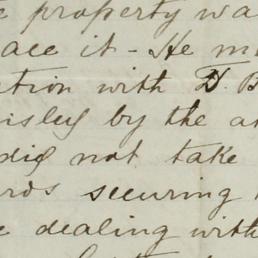 e property wa
ace it - He m
ation with T. B
isley by the a
did not take
rds securing
e dealing with